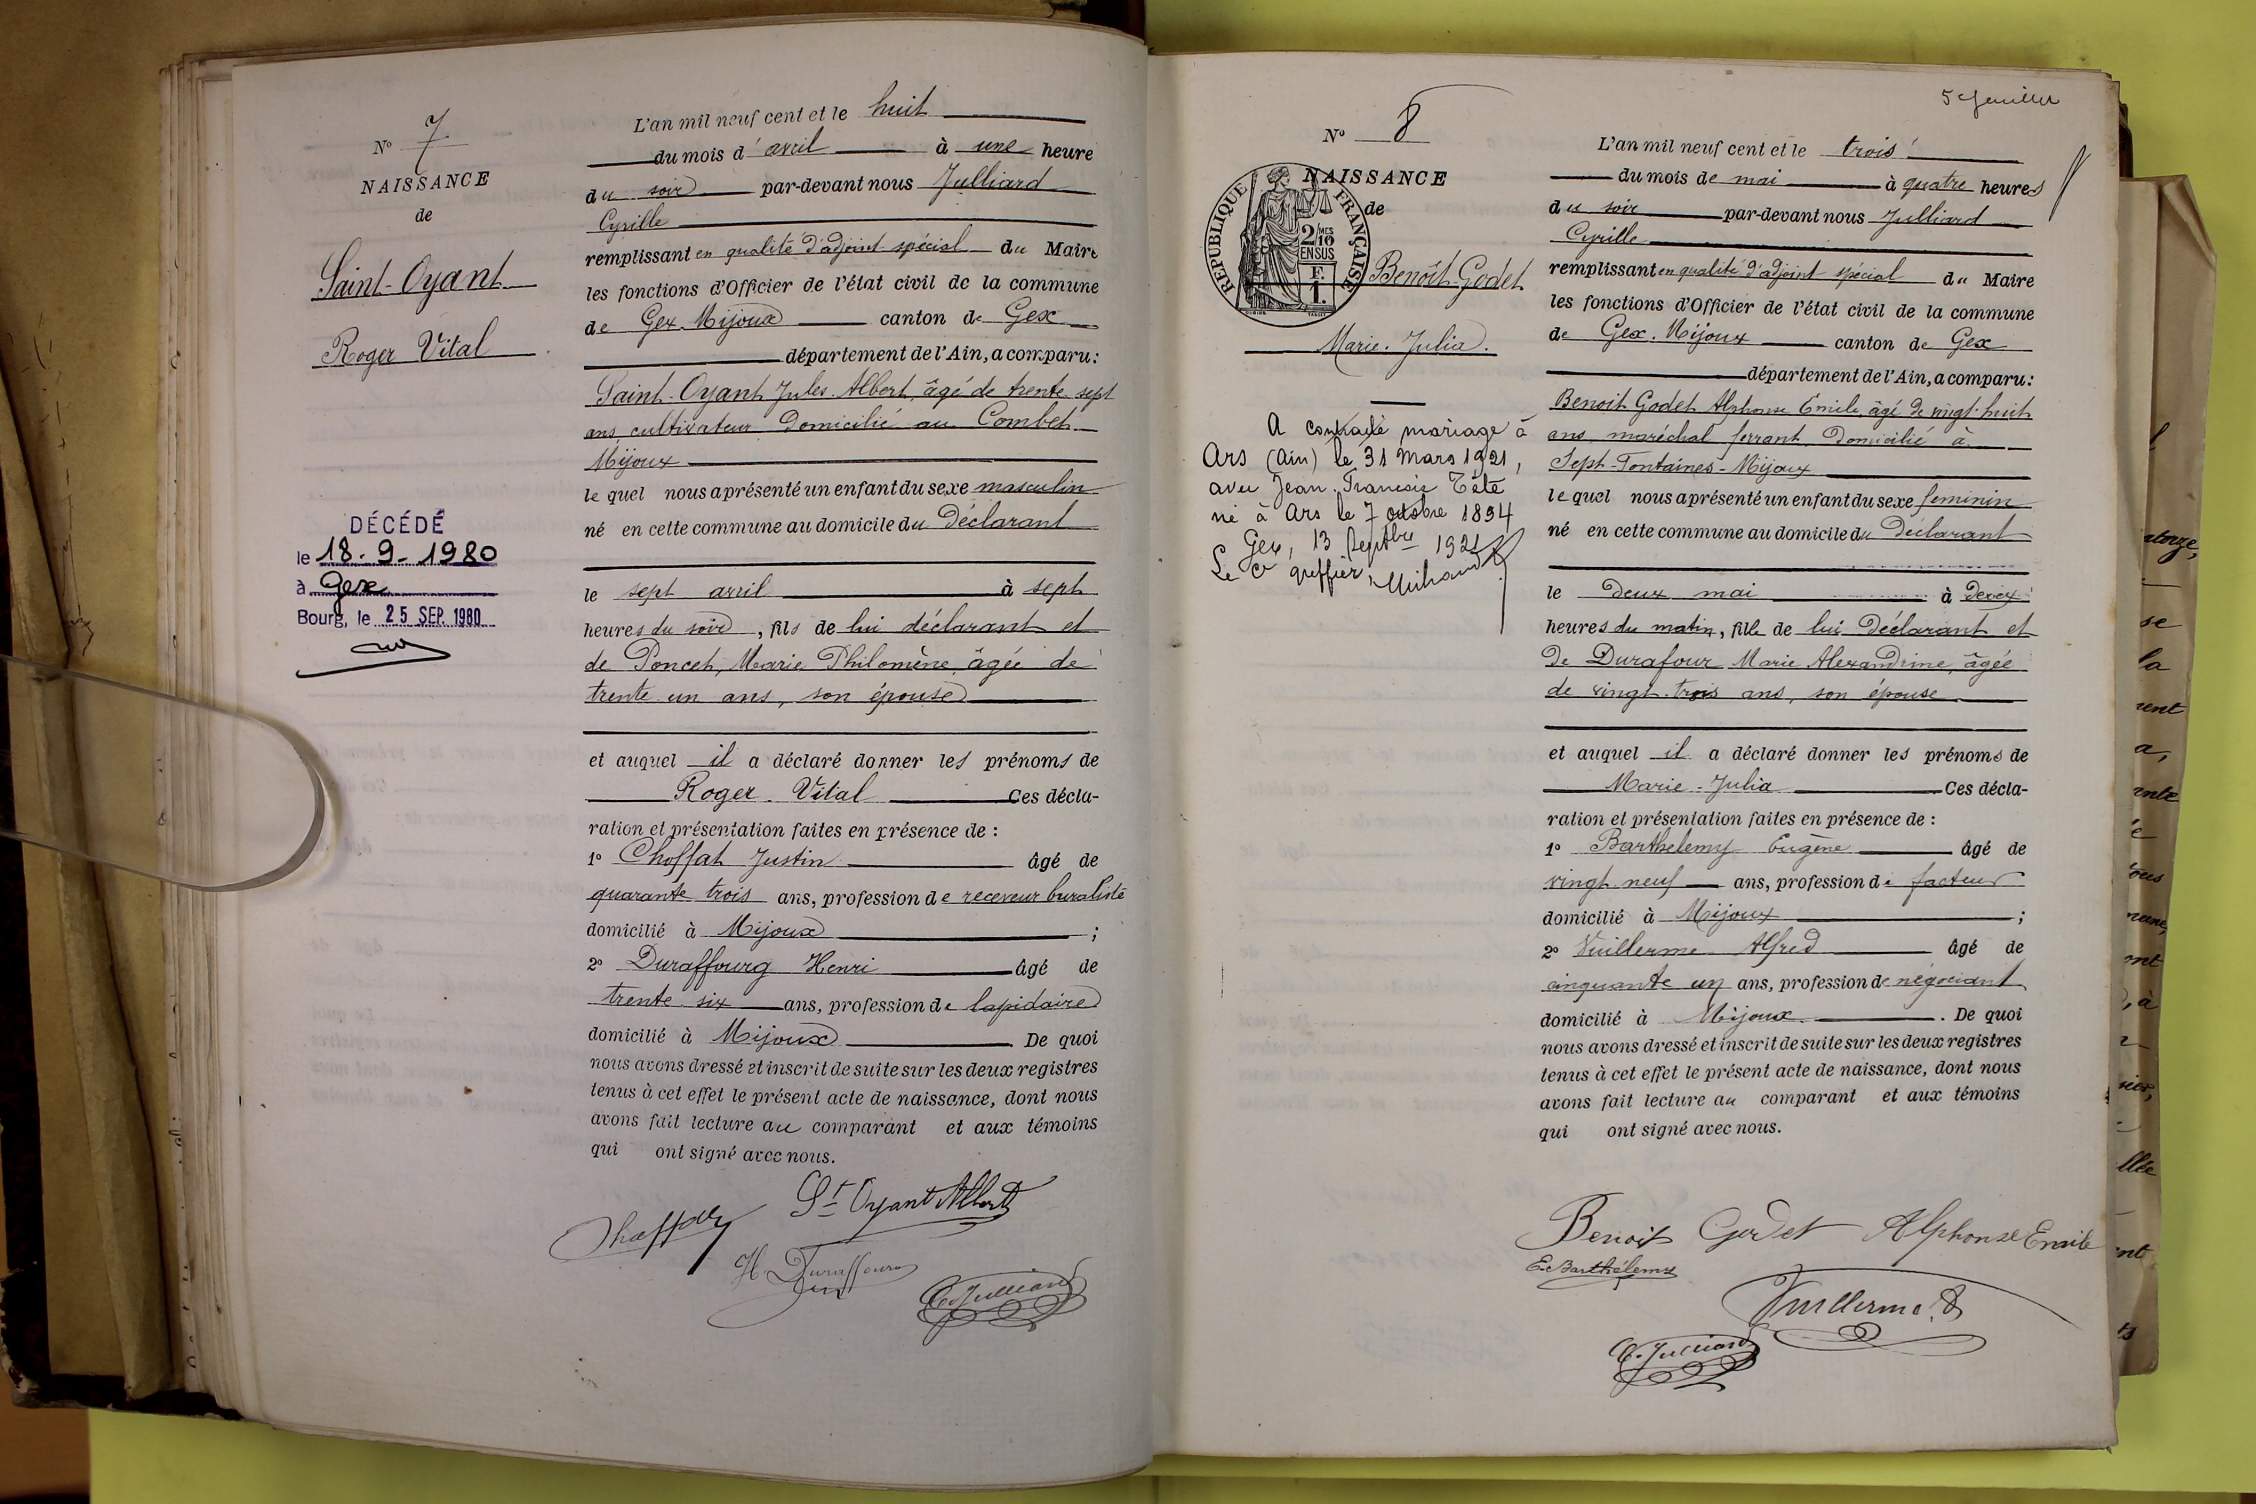 N° 7
NAISSANCE
de
Saint-Oyant
Roger Vital
DÉCÉDÉ
le 18-9-1980
à Gex
Bourg, le 25 SEP. 1980
L'an mil neuf cent et le huit
du mois d'avril à une heure
du soir par-devant nous Julliard
Cyrille
remplissant en qualité d'adjoint spécial du Maire
les fonctions d'Officier de l'état civil de la commune
de Gex-Mijoux canton de Gex
département de l'Ain, a comparu:
Saint-Oyant Jules Albert, âgé de trente sept
ans, cultivateur domicilié au Combet-
Mijoux
le quel nous a présenté un enfant du sexe masculin
né en cette commune au domicile du Déclarant
le sept avril à sept
heures du soir, fils de lui déclarant et
de Poncet, Marie Philomène, âgée de
trente un ans, son épouse
et auquel il a déclaré donner les prénoms de
Roger Vital Ces décla-
ration et présentation faites en présence de :
1° Choffat Justin âgé de
quarante trois ans, profession de receveur buraliste
domicilié à Mijoux ;
2° Duraffourg Henri âgé de
trente six ans, profession de lapidaire
domicilié à Mijoux De quoi
nous avons dressé et inscrit de suite sur les deux registres
tenus à cet effet le présent acte de naissance, dont nous
avons fait lecture au comparant et aux témoins
qui ont signé avec nous.
St Oyant Albert
Choffat
H. Duraffourg
C. Julliard
5e feuillet
N° 8
NAISSANCE
de
RÉPUBLIQUE FRANÇAISE
2/10 MES
EN SUS
F.
1.
Benoît-Godet
Marie-Julia.
A contracté mariage à
Ars (Ain) le 31 mars 1921,
avec Jean-Francois Tête
né à Ars le 7 octobre 1894
Gex, 13 Septbre 1921
Le Cis greffier,
L'an mil neuf cent et le trois
du mois de mai à quatre heures
du soir par-devant nous Julliard
Cyrille
remplissant en qualité d'adjoint spécial du Maire
les fonctions d'Officier de l'état civil de la commune
de Gex-Mijoux canton de Gex
département de l'Ain, a comparu:
Benoit Godet Alphonse Émile, âgé de vingt-huit
ans, maréchal ferrant, Domicilié à
Sept-Fontaines-Mijoux
le quel nous a présenté un enfant du sexe feminin
né en cette commune au domicile du Déclarant
le deux mai à deux
heures du matin, fille de lui Déclarant et
de Durafour Marie Alexandrine, âgée
de vingt-trois ans, son épouse
et auquel il a déclaré donner les prénoms de
Marie-Julia Ces décla-
ration et présentation faites en présence de :
1° Barthelemy Eugène âgé de
vingt neuf ans, profession de facteur
domicilié à Mijoux ;
2° Vuillerme Alfred âgé de
cinquante un ans, profession de négociant
domicilié à Mijoux. De quoi
nous avons dressé et inscrit de suite sur les deux registres
tenus à cet effet le présent acte de naissance, dont nous
avons fait lecture au comparant et aux témoins
qui ont signé avec nous.
Benoit Godet Alphonse Emile
E. Barthélemy
Vuillerme A
C. Julliard